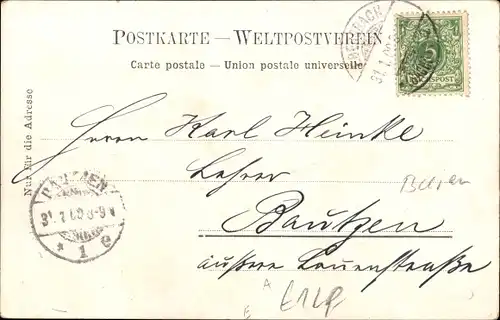 POSTKARTE — WELTPOSTVEREIN
Carte postale — Union postale universelle
5
Nur für die Adresse
Herrn Karl Heinke
Lehrer
Bautzen
äußere Lauenstraße
BAUTZEN
31.1.00 8-9 V
* 1 e